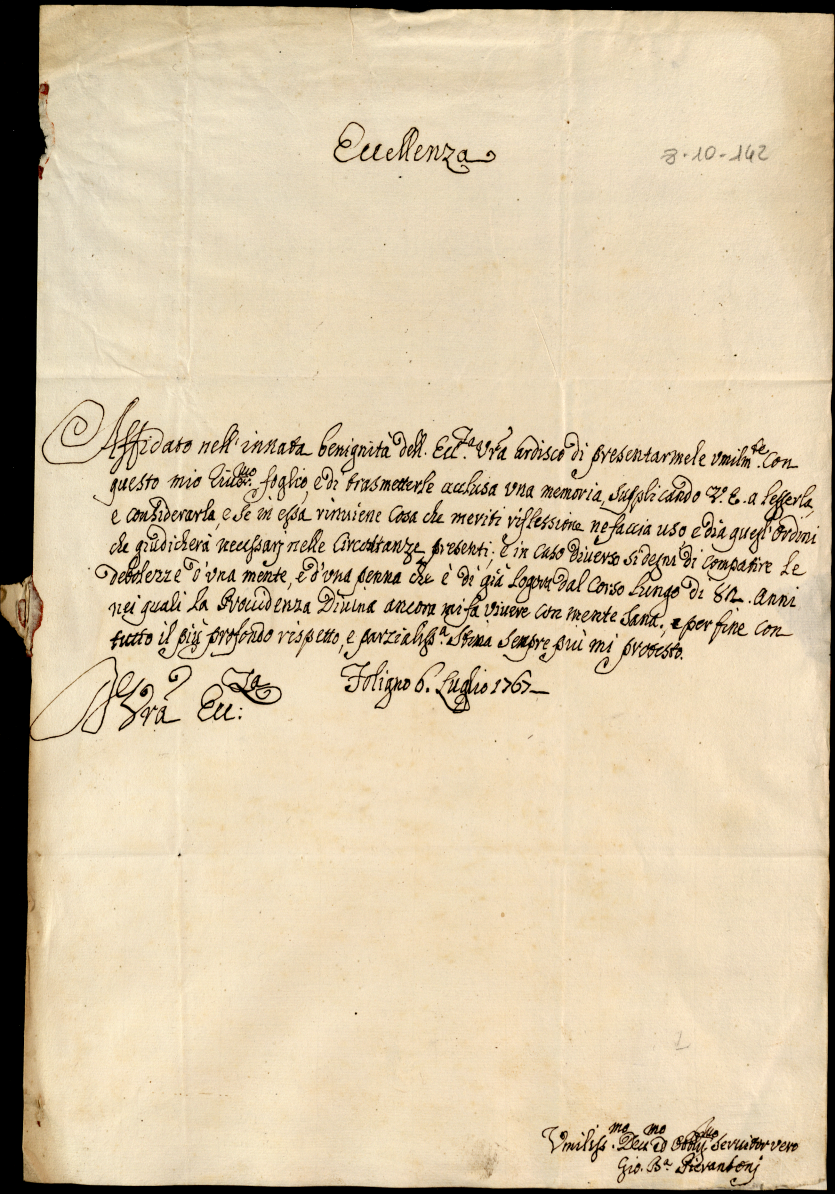 Eccellenza
8-10-142
Affidato nell'innata benignità dell. Ecc.za Vra ardisco di presentarmele vmilm.te con
questo mio foglio, e di trasmetterle acclusa vna memoria, supplicando V. E. a leggerla,
e considerarla, e se in essa rinuiene cosa che meriti riflessione ne faccia uso e dia quegl'ordini
che giudicherà necessarj nelle circostanze presenti; e in caso diuerso si degna di compatire le
debolezze d'vna mente, e d'vna penna che è di già logora dal corso lungo di 82. anni
nei quali la Prouidenza Diuina ancora mi fa viuere con mente sana; e per fine con
tutto il più profondo rispetto, e parzialiss.a stima sempre più mi protesto.
Di Vra Ecc:za
Foligno 6. Luglio 1767
Vmiliss.mo Deu.mo ed Obblig.mo Seruitor vero
Gio. B.a Pierantonj